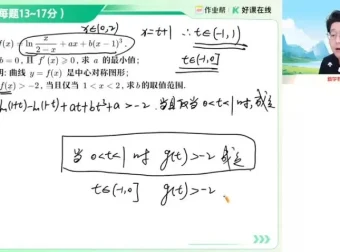 每题13~17分)
作业帮 | 好课在线
x∈(0,2)
x=t+1 ∴ t∈(-1,1)
f(x)=ln x/(2-x) + ax + b(x-1)³.
t∈(-1,0]
b=0, 且 f′(x)≥0, 求 a 的最小值;
明: 曲线 y=f(x) 是中心对称图形;
f(x)>-2, 当且仅当 1<x<2, 求 b 的取值范围.
ln(1+t)-ln(1-t)+at+bt³+a>-2. 当且仅当 0<t<1时, 成立
当 0<t<1 时 g(t)>-2 成立
t∈(-1,0] g(t)>-2